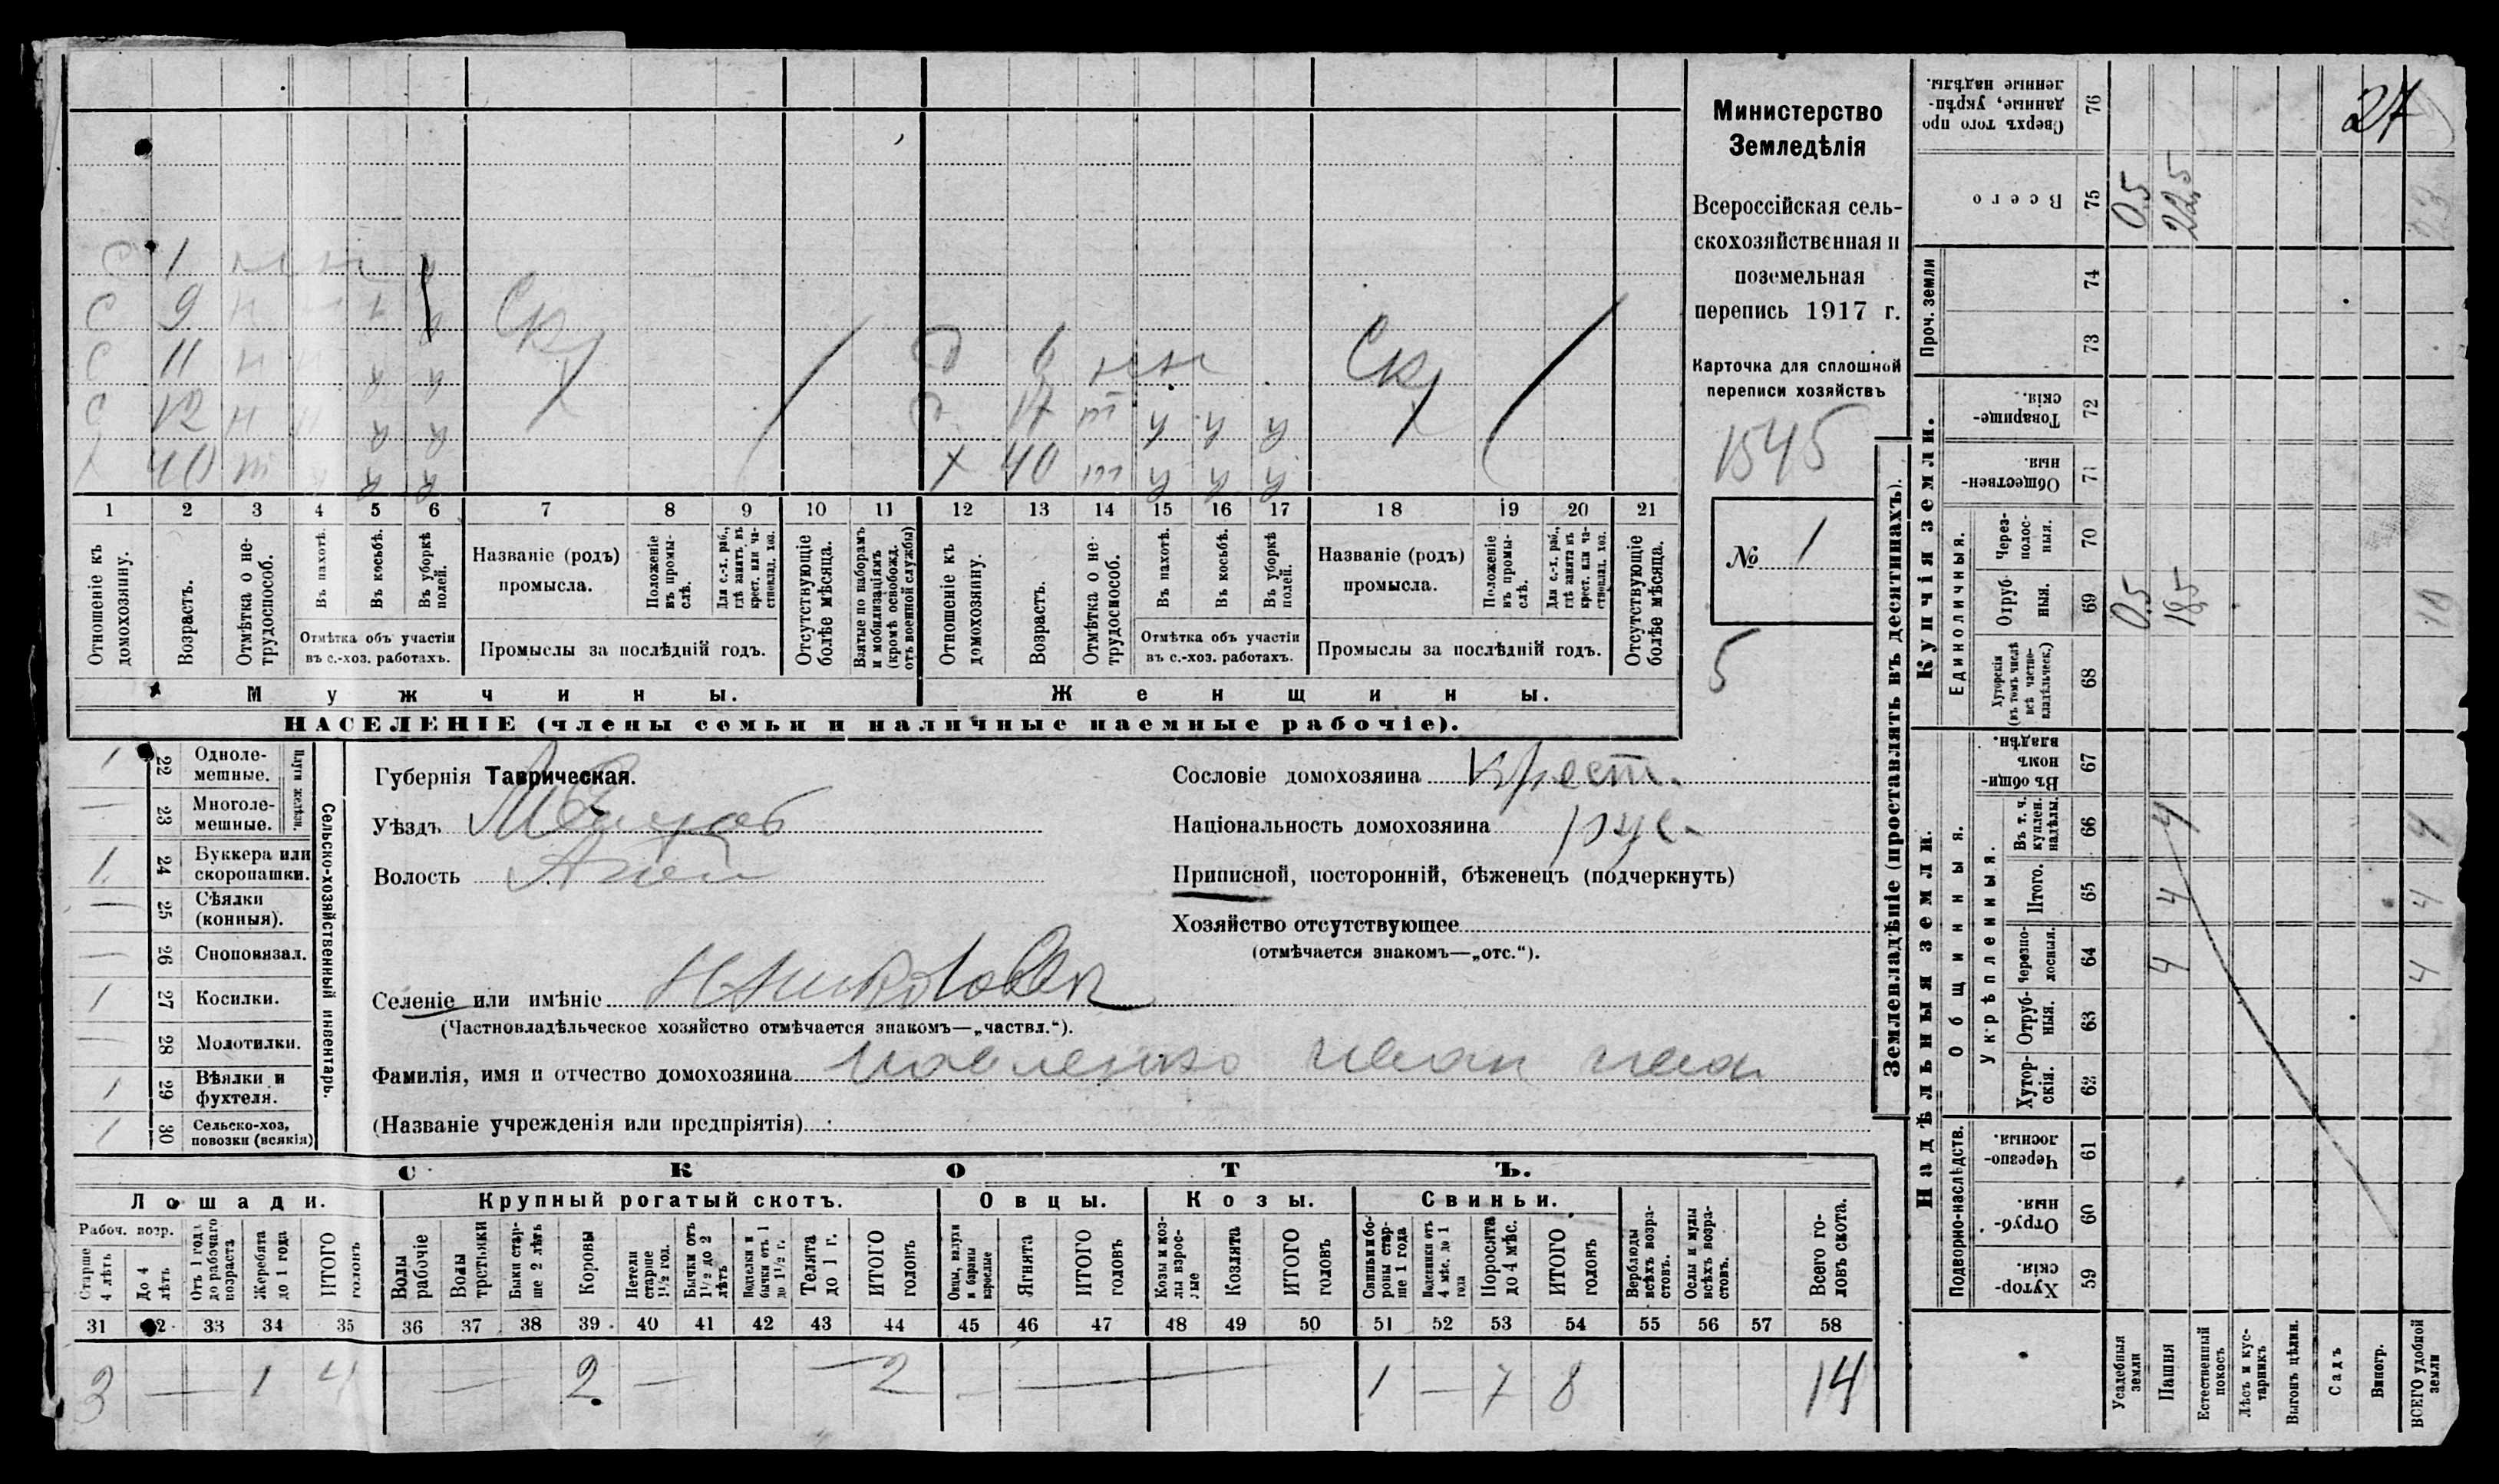 27
с 1 н н
с 9 н
с 11 н н
с 12 н н
х 40 т
Ск
Х
д 6 н н
д 17 т у у у
х 40 т у у у
Ск
Х
1 2 3 4 5 6 7 8 9 10 11 12 13 14 15 16 17 18 19 20 21
Отношеніе къ домохозяину.
Возрастъ.
Отмѣтка о нетрудоспособ.
Въ пахотѣ.
Въ косьбѣ.
Въ уборкѣ полей.
Отмѣтка объ участіи
въ с.-хоз. работахъ.
Названіе (родъ)
промысла.
Положеніе въ промыслѣ.
Для с.-х. раб., гдѣ занятъ въ крест. или частновлад. хоз.
Промыслы за послѣдній годъ.
Отсутствующіе болѣе мѣсяца.
Взятые по наборамъ и мобилизаціямъ (кромѣ освобожд. отъ военной службы)
Отношеніе къ домохозяину.
Возрастъ.
Отмѣтка о нетрудоспособ.
Въ пахотѣ.
Въ косьбѣ.
Въ уборкѣ полей.
Отмѣтка объ участіи
въ с.-хоз. работахъ.
Названіе (родъ)
промысла.
Положеніе въ промыслѣ.
Для с.-х. раб., гдѣ занята въ крест. или частновлад. хоз.
Промыслы за послѣдній годъ.
Отсутствующіе болѣе мѣсяца.
Мужчины.
Женщины.
НАСЕЛЕНІЕ (члены семьи и наличные наемные рабочіе).
Министерство
Земледѣлія
Всероссійская сель-
скохозяйственная и
поземельная
перепись 1917 г.
Карточка для сплошной
переписи хозяйствъ
1545
№ 1
5
Сельско-хозяйственный инвентарь.
Плуги желѣзн.
1 22 Однолемешные.
— 23 Многолемешные.
1. 24 Буккера или скоропашки.
— 25 Сѣялки (конныя).
— 26 Сноповязал.
1 27 Косилки.
— 28 Молотилки.
1 29 Вѣялки и фухтеля.
1 30 Сельско-хоз. повозки (всякія)
Губернія Таврическая.
Уѣздъ
Волость
Селеніе или имѣніе
(Частновладѣльческое хозяйство отмѣчается знакомъ—„частвл.“).
Фамилія, имя и отчество домохозяина Иван Иван
(Названіе учрежденія или предпріятія)
Сословіе домохозяина крест.
Національность домохозяина рус.
Приписной, посторонній, бѣженецъ (подчеркнуть)
Хозяйство отсутствующее
(отмѣчается знакомъ—„отс.“).
СКОТЪ.
Лошади. Крупный рогатый скотъ. Овцы. Козы. Свиньи.
Рабоч. возр.
Старше 4 лѣтъ
До 4 лѣтъ
Отъ 1 года до рабочаго возраста
Жеребята до 1 года
ИТОГО головъ
Волы рабочіе
Волы третьяки
Быки старше 2 лѣтъ
Коровы
Нетели старше 1½ год.
Бычки отъ 1½ до 2 лѣтъ
Подтелки и бычки отъ 1 до 1½ г.
Телята до 1 г.
ИТОГО головъ
Овцы, валухи и бараны взрослые
Ягнята
ИТОГО головъ
Козы и козлы взрослые
Козлята
ИТОГО головъ
Свиньи и боровы старше 1 года
Подсвинки отъ 4 мѣс. до 1 года
Поросята до 4 мѣс.
ИТОГО головъ
Верблюды всѣхъ возрастовъ.
Ослы и мулы всѣхъ возрастовъ.
Всего головъ скота.
31 32 33 34 35 36 37 38 39 40 41 42 43 44 45 46 47 48 49 50 51 52 53 54 55 56 57 58
3 — 1 4 — 2 — — 2 — — 1 — 7 8 14
Землевладѣніе (проставлять въ десятинахъ).
Купчія земли.
Надѣльныя земли.
Сверхъ того проданные, укрѣпленные надѣлы. 76
Всего 75 0,5 22,5 23
Проч. земли 74
73
Товарищескія. 72
Общественныя. 71
Единоличныя.
Черезполосныя. 70
Отрубныя. 69 0,5 18,5 19
Хуторскія (въ томъ числѣ всѣ частновладѣльческ.) 68
Общинныя.
Въ общинномъ владѣн. 67
Укрѣпленныя.
Въ т. ч. куплен. надѣлы. 66 4 4
Итого. 65 4 4
Черезполосныя. 64 4 4
Отрубныя. 63
Хуторскія. 62
Подворно-наслѣдств.
Черезполосныя. 61
Отрубныя. 60
Хуторскія. 59
Усадебныя земли
Пашня
Естественный покосъ
Лѣсъ и кустарникъ
Выгонъ цѣлин.
Садъ
Виногр.
ВСЕГО удобной земли